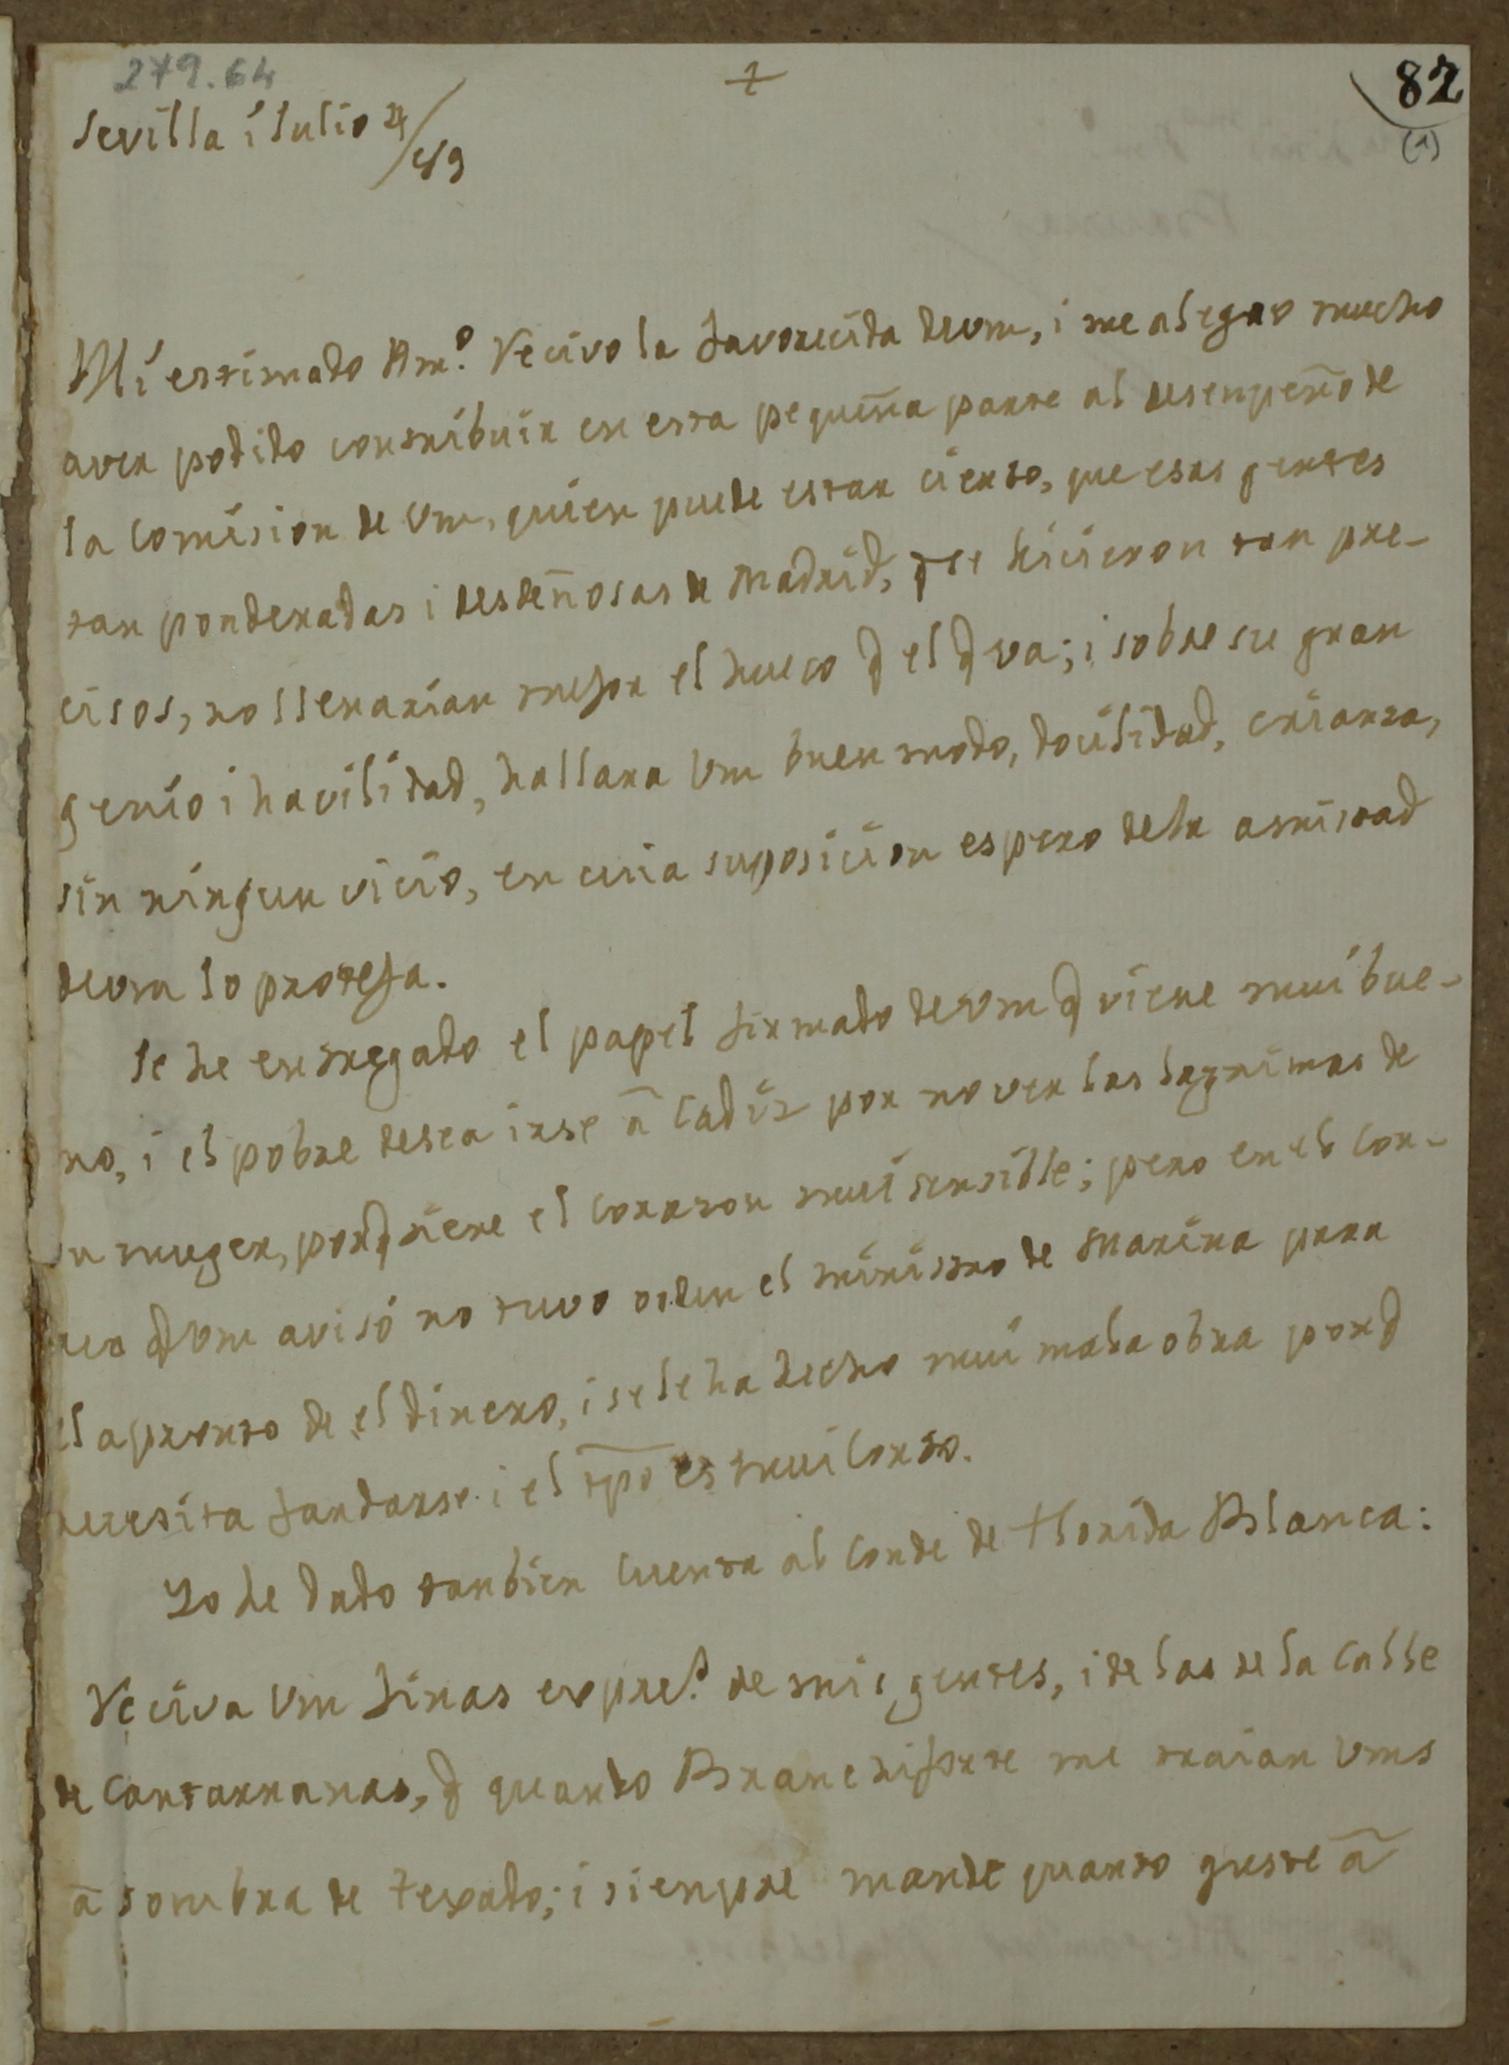 279.64
+
82
(1)
Sevilla i Julio 4/89
Mi estimado Am.º Recivo la favorecida de vm, i me alegro mucho
aver podido contribuir en esta pequeña parte al desenpeño de
la Comision de Vm, quien puede estar cierto, que esas gentes
tan ponderadas i desdeñosas de Madrid, q se hicieron tan pre-
cisos, no llenarian mejor el hueco q el q va; i sobre su gran
genio i havilidad, hallara Vm buen modo, docilidad, crianza,
sin ningun vicio, en cuia suposicion espero de la amistad
de vm lo proteja.
Le he entregado el papel firmado de vm q viene mui bue-
no, i el pobre desea irse â Cadiz por no ver las lagrimas de
su muger, porq tiene el corazon mui sensible; pero en el cor-
reo q Vm avisó no tuvo orden el ministro de Marina para
el apronto de el dinero, i se le ha hecho mui mala obra porq
necesita fardarse i el tpo es mui corto.
Yo he dado tanbien cuenta al Conde de Florida Blanca:
Reciva Vm finas expre.s de mis gentes, i de las de la Calle
de Cantarranas, q quando Branchiforte me traian Vms
â sombra de texado; i sienpre mande quanto guste â